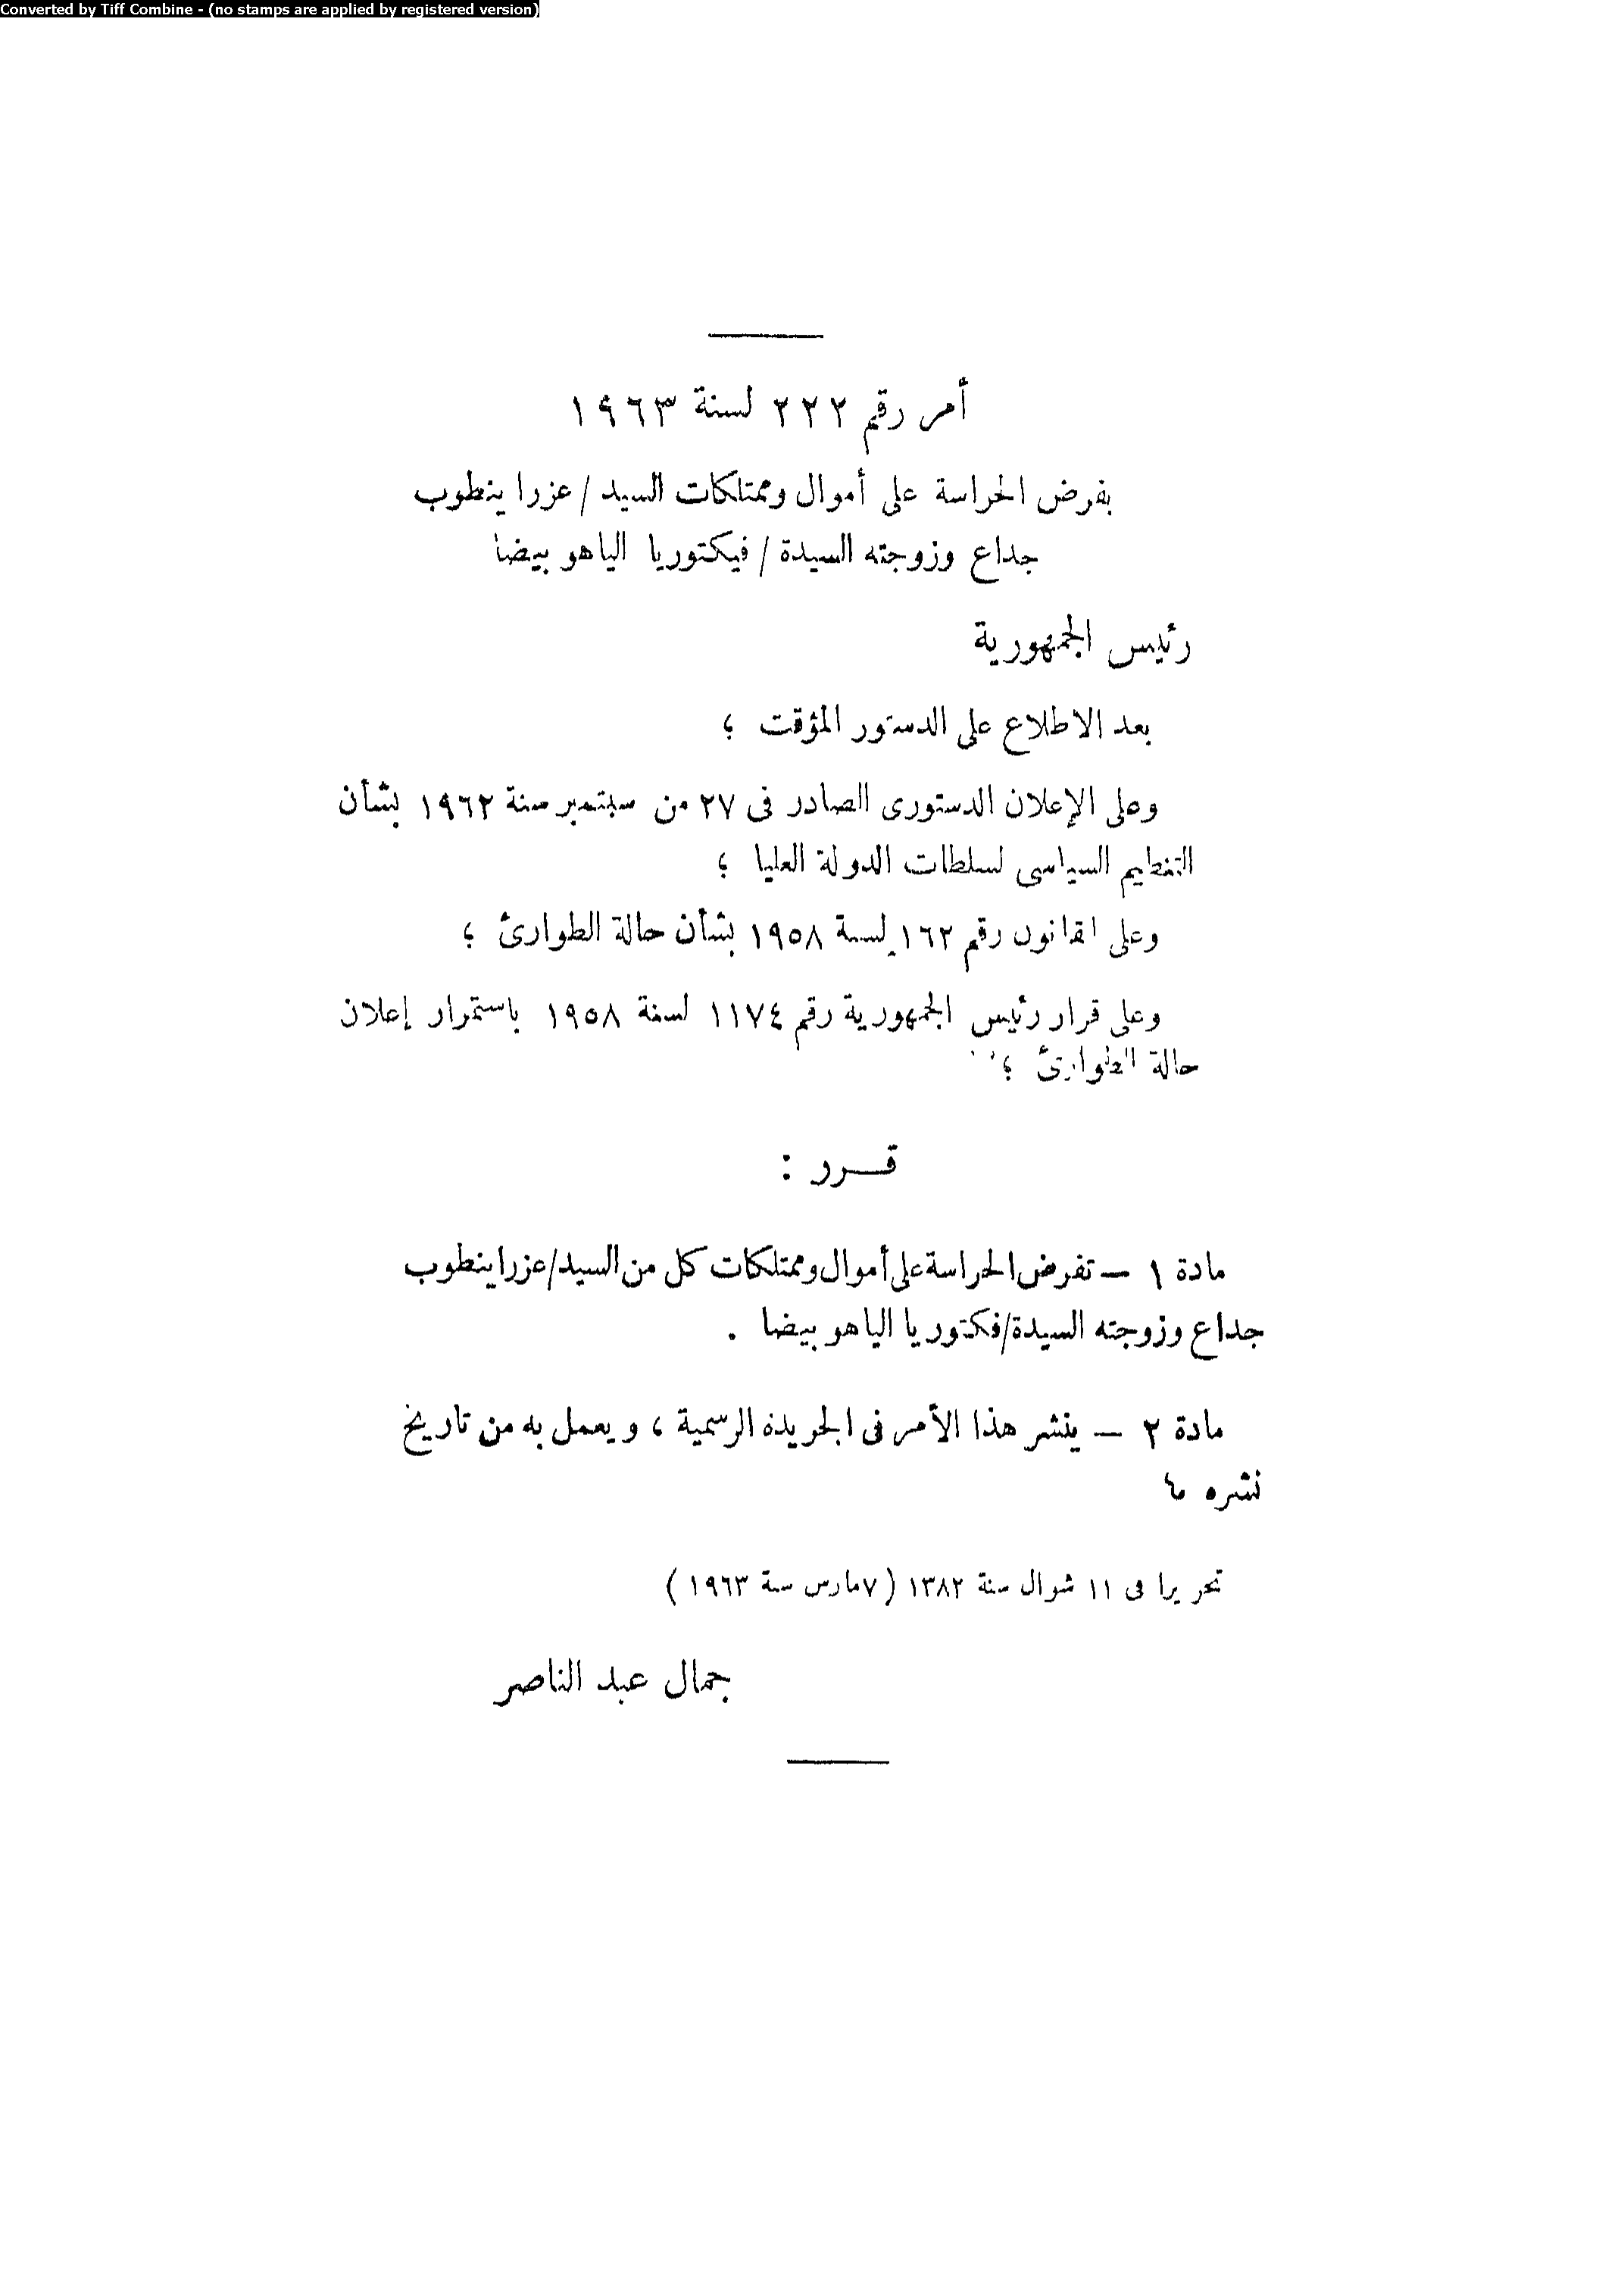 Converted by Tiff Combine - (no stamps are applied by registered version)
أمر رقم ٢٢٢ لسنة ١٩٦٣
بفرض الحراسة على أموال وممتلكات السيد / عزرا ينطوب
جداع وزوجته السيدة / فيكتوريا الياهو بيضا
رئيس الجمهورية
بعد الاطلاع على الدستور المؤقت ؛
وعلى الإعلان الدستورى الصادر فى ٢٧ من سبتمبر سنة ١٩٦٢ بشأن
التنظيم السياسى لسلطات الدولة العليا ؛
وعلى القانون رقم ١٦٢ لسنة ١٩٥٨ بشأن حالة الطوارئ ؛
وعلى قرار رئيس الجمهورية رقم ١١٧٤ لسنة ١٩٥٨ باستمرار إعلان
حالة الطوارئ ؛
قـــرر :
مادة ١ — تفرض الحراسة على أموال وممتلكات كل من السيد/عزرا ينطوب
جداع وزوجته السيدة/فكتوريا الياهو بيضا .
مادة ٢ — ينشر هذا الأمر فى الجريدة الرسمية ، ويعمل به من تاريخ
نشره
تحريرا فى ١١ شوال سنة ١٣٨٢ (٧ مارس سنة ١٩٦٣)
جمال عبد الناصر